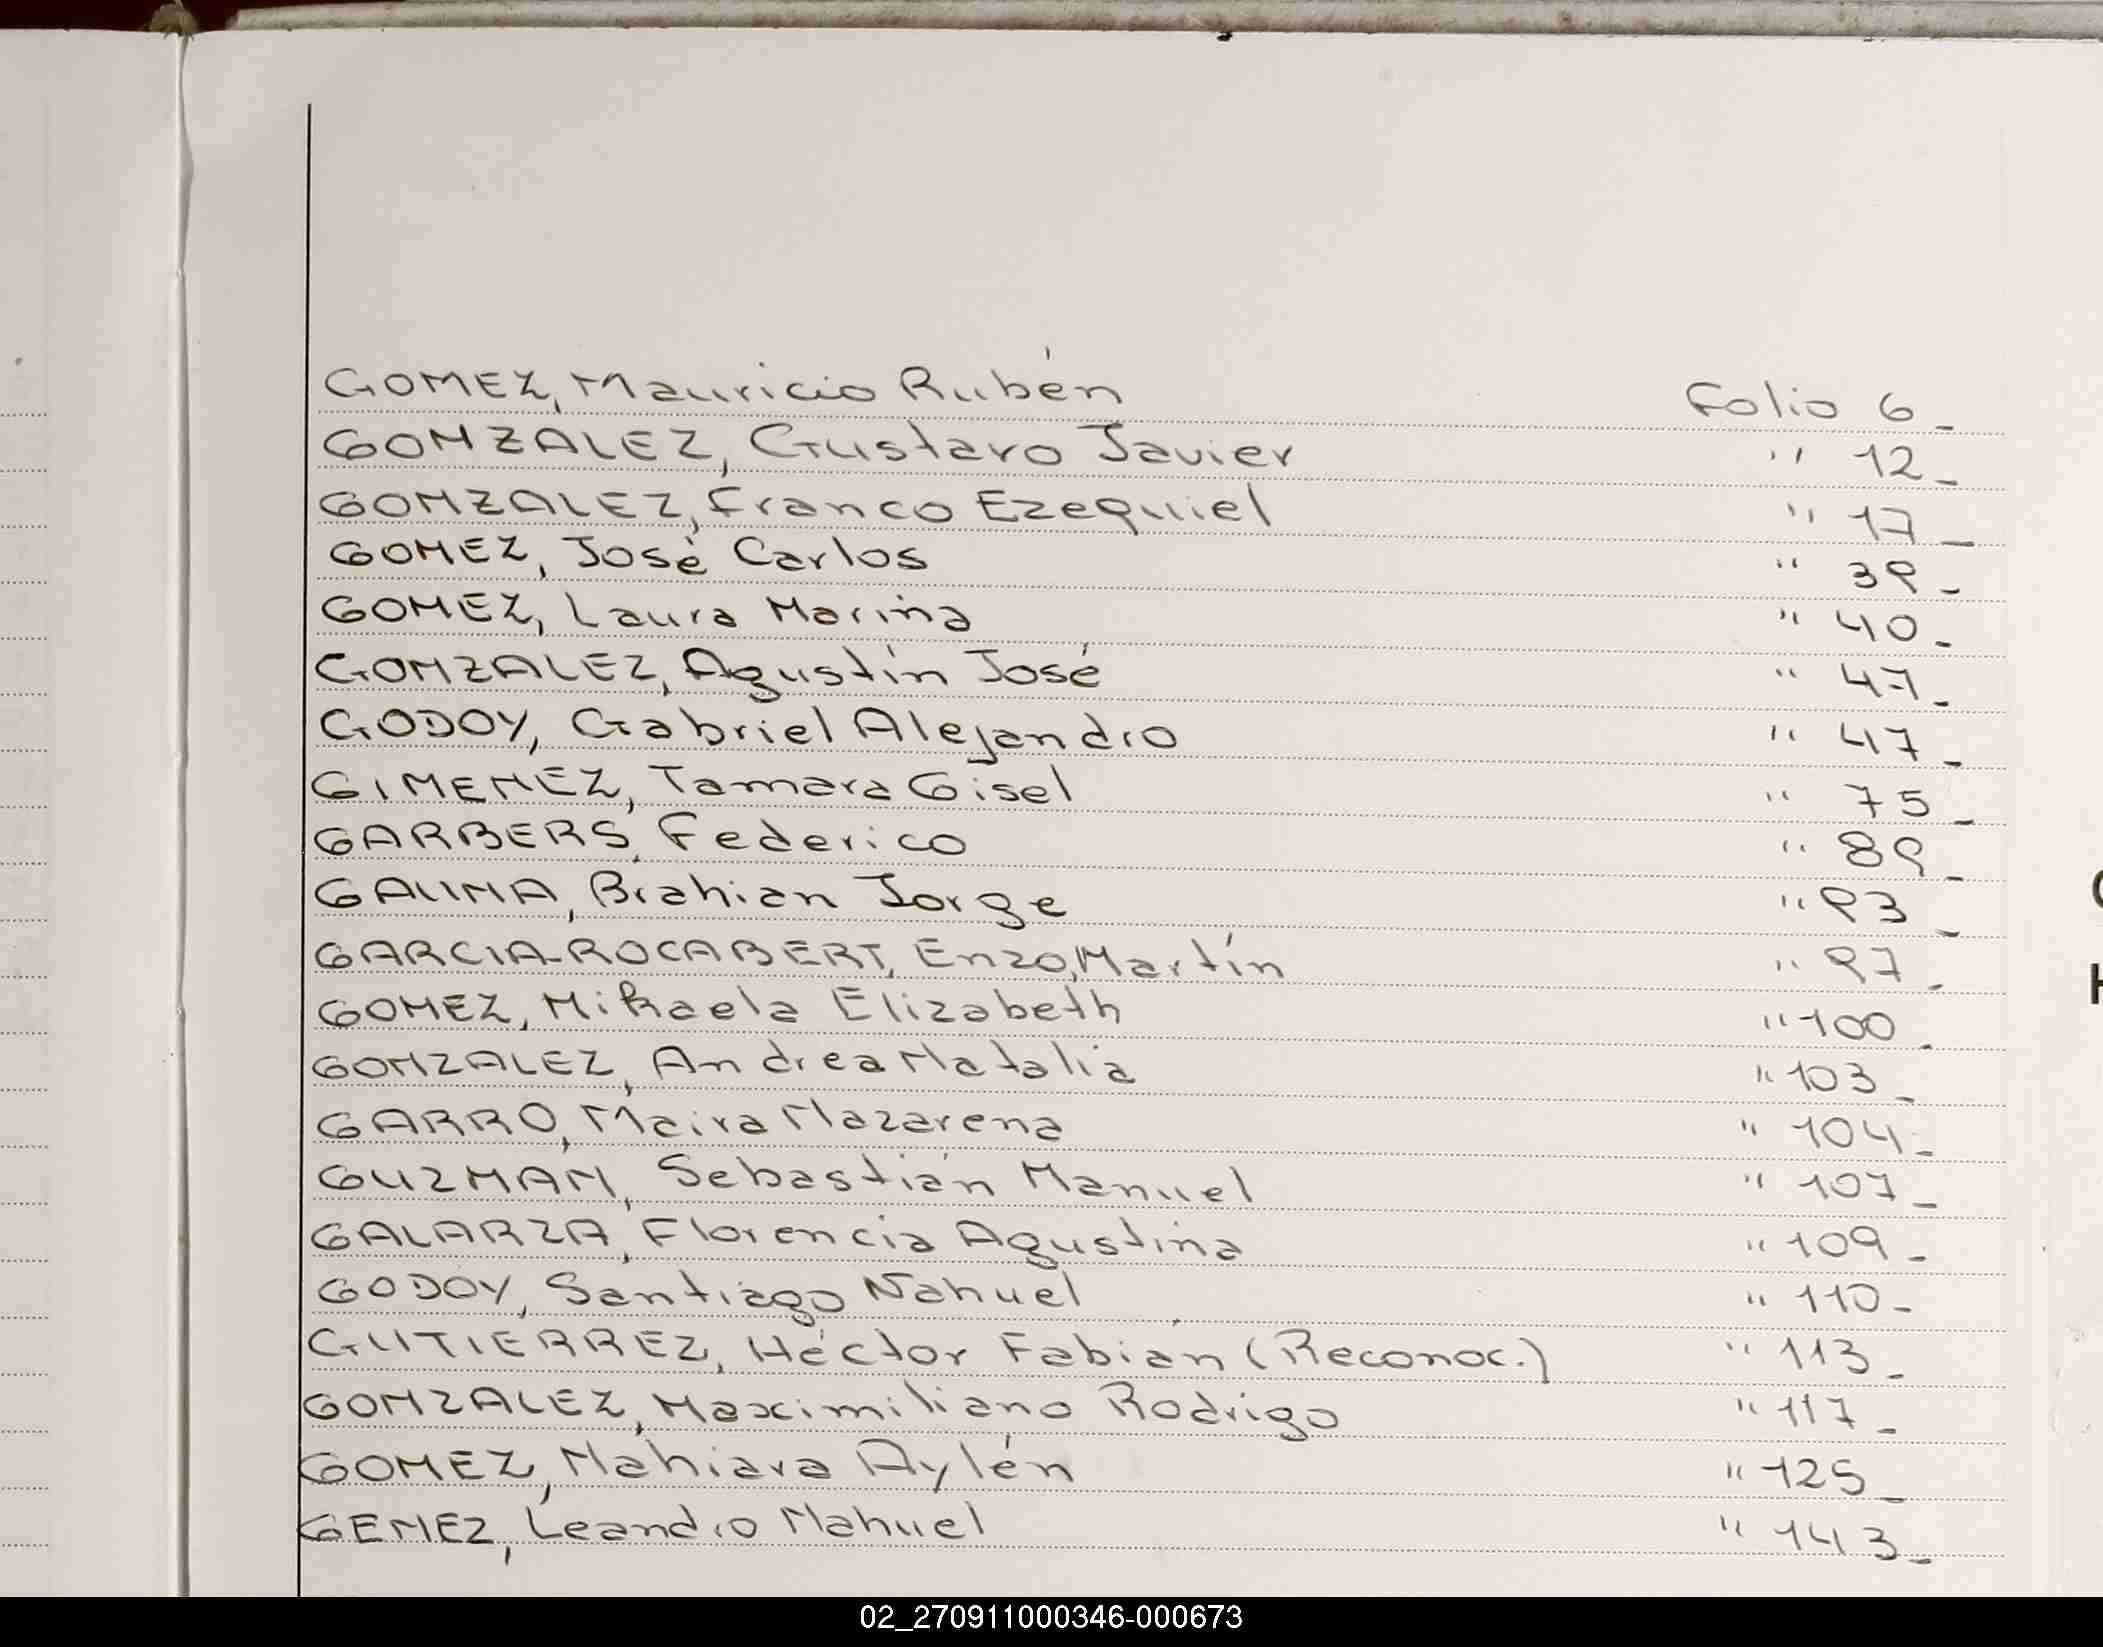 GOMEZ, Mauricio Rubén Folio 6_
GONZALEZ, Gustavo Javier " 12_
GONZALEZ, Franco Ezequiel " 17_
GOMEZ, José Carlos " 39_
GOMEZ, Laura Marina " 40_
GONZALEZ, Agustín José " 47_
GODOY, Gabriel Alejandro " 47_
GIMENEZ, Tamara Gisel " 75_
GARBERS, Federico " 89_
GAUNA, Brahian Jorge " 93_
GARCIA-ROCABERT, Enzo, Martín " 97_
GOMEZ, Mikaela Elizabeth " 100_
GONZALEZ, Andrea Natalia " 103_
GARRO, Maira Nazarena " 104_
GUZMAN, Sebastián Manuel " 107_
GALARZA, Florencia Agustina " 109_
GODOY, Santiago Nahuel " 110_
GUTIERREZ, Héctor Fabian (Reconoc.) " 113_
GONZALEZ, Maximiliano Rodrigo " 117_
GOMEZ, Nahiara Aylén " 125_
GEMEZ, Leandro Nahuel " 143_
02_270911000346-000673